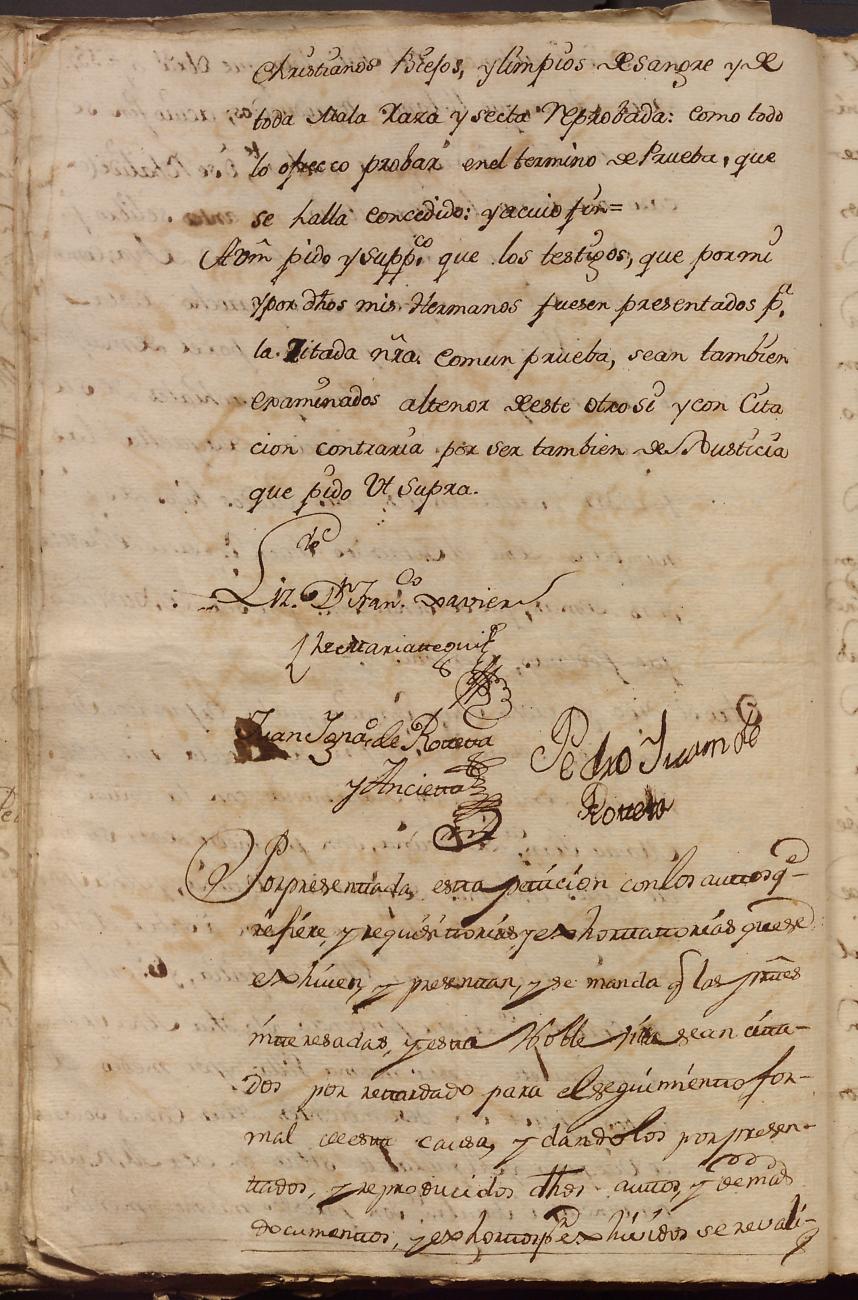 Christianos Biejos, y limpios de sangre y de
toda Mala Raza y secta reprobada: como todo
lo ofrezco probar en el termino de Prueba, que
se halla concedido: y a cuio fin=
A Vm pido y supp.co que los testigos, que por mi
y por dhos mis Hermanos fuesen presentados p.a
la Zitada nra. comun prueba, sean tambien
examinados al tenor de este otro si y con Cita
cion contraria por ser tambien de Justicia
que pido Ut supra.
Liz.do Dn Fran.co Xavier
Juan Ign.o de Rotteta
y Ancietta
Pedro Juan de
Rotteta
Por presentada esta peticion con los auttos q.e
refiere, y requisittorias, y exhortattorias que se
exhiven, y presentan, y se manda q las prttes
intteresadas, y esta Noble villa sean citta-
dos por rettardado para el seguimientto for-
mal de esta causa, y dandolos por presen-
ttados, y reproducidos dhos auttos, y demas
documenttos, y exhorttos exhividos se revali-